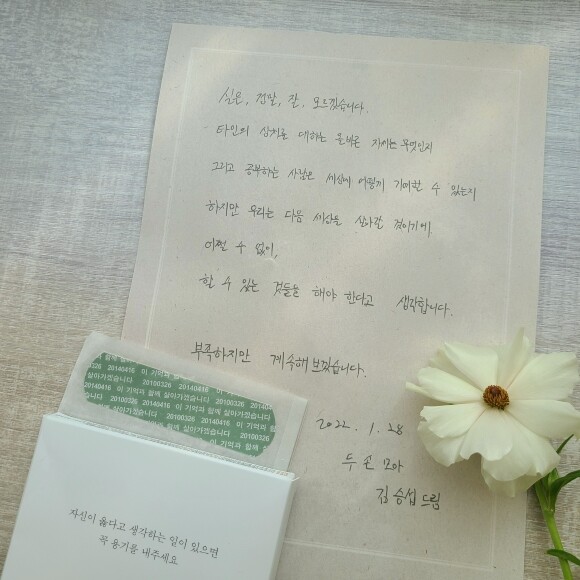 실은, 정말, 잘, 모르겠습니다.
타인의 상처를 대하는 올바른 자세는 무엇인지
그리고 공부하는 사람은 세상에 어떻게 기여할 수 있는지
하지만 우리는 다음 세상을 살아갈 것이기에
어쩔 수 없이,
할 수 있는 것들을 해야 한다고 생각합니다.
부족하지만 계속해보겠습니다.
2022. 1. 28
두 손 모아
김승섭 드림
20140416 이 기억과 함께
살아가겠습니다 20100326 20140416
20140416 이 기억과 함께 살아가겠습니다
살아가겠습니다 20100326 20140416
20140416 이 기억과 함께 살아가겠습니다 20100326
20100326 20140416 이 기억과 함께
이 기억과 함께 살아가겠습니다
자신이 옳다고 생각하는 일이 있으면
꼭 용기를 내주세요